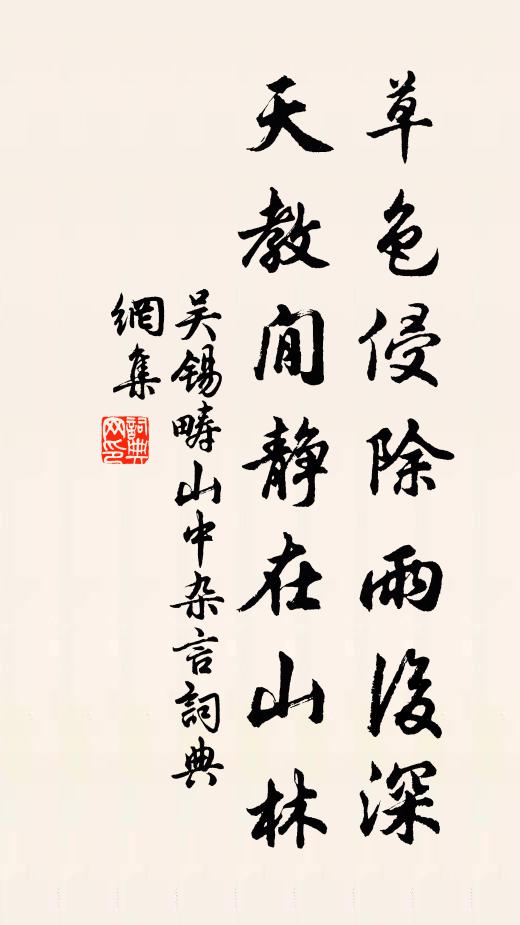 草色侵除雨後深
天教閒静在山林
吴锡畴山中杂言詞典
網集
詞典
网印